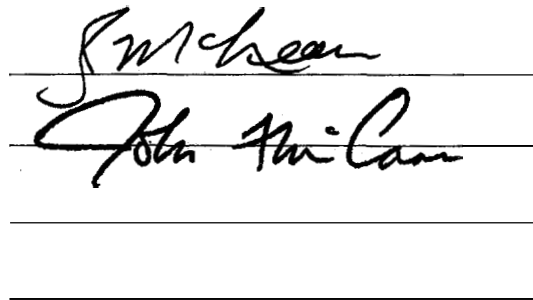 J McLean
John McCann